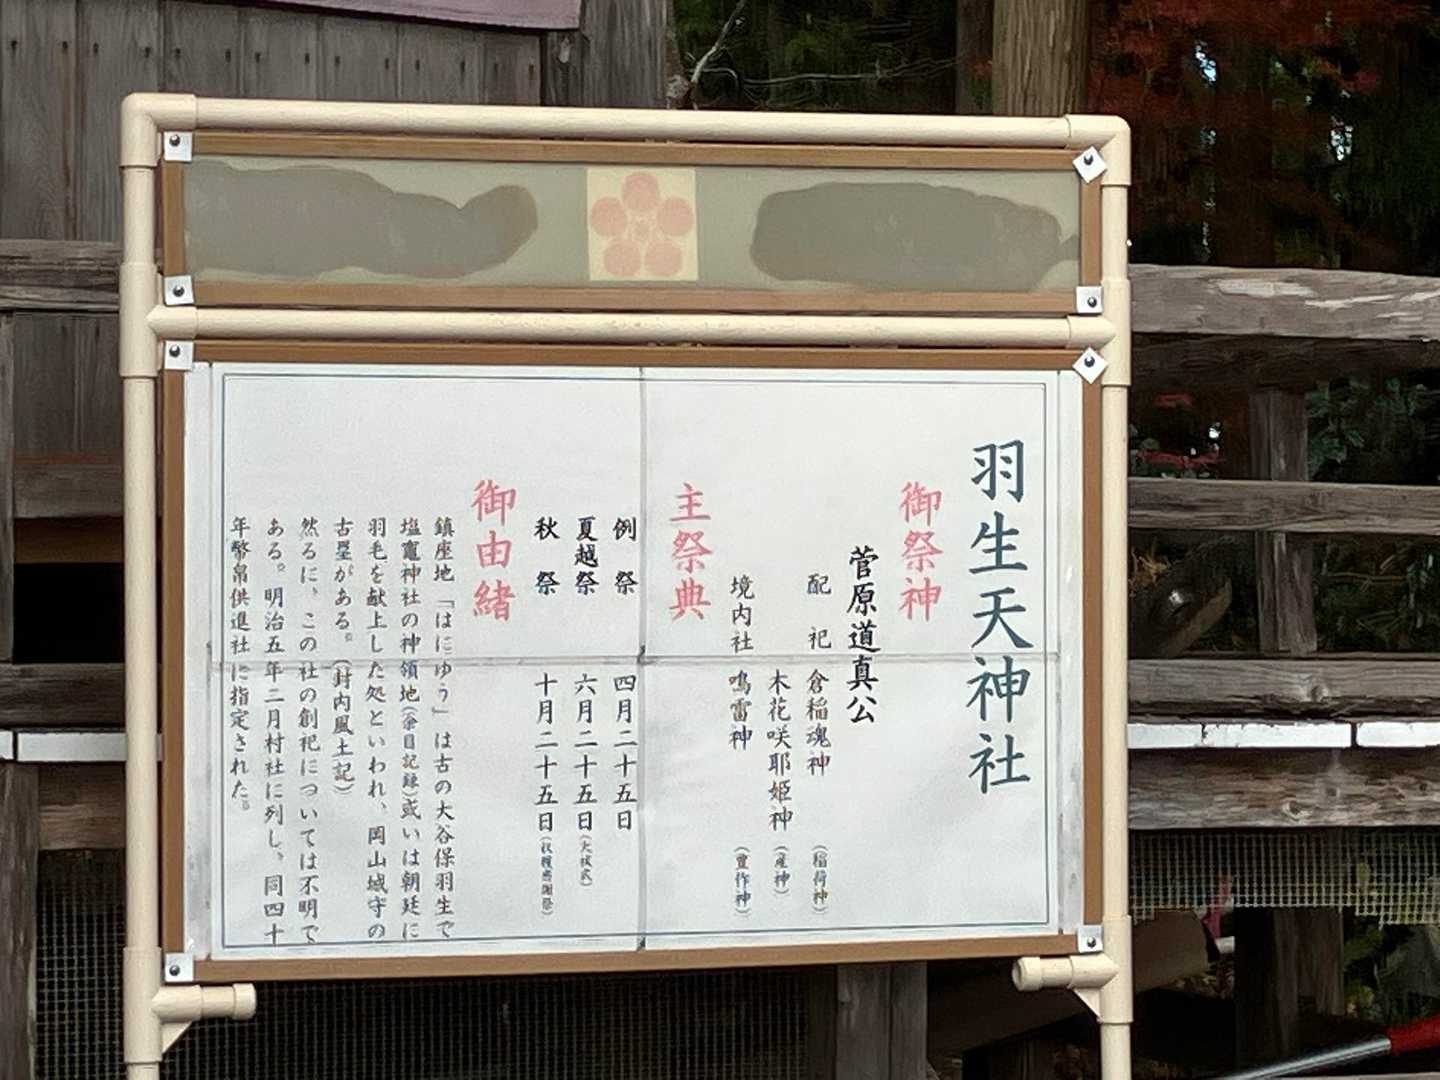 羽生天神社
御祭神
菅原道真公
配祀 倉稲魂神 (稲荷神)
木花咲耶姫神 (産神)
境内社 鳴雷神 (豊作神)
主祭典
例祭 四月二十五日
夏越祭 六月二十五日 (大祓式)
秋祭 十月二十五日 (秋穫感謝祭)
御由緒
鎮座地「はにゆう」は古の大谷保羽生で
塩竈神社の神領地(余目記録)或いは朝廷に
羽毛を献上した処といわれ、岡山城守の
古塁がある。(封内風土記)
然るに、この社の創祀については不明で
ある。明治五年二月村社に列し、同四十
年幣帛供進社に指定された。